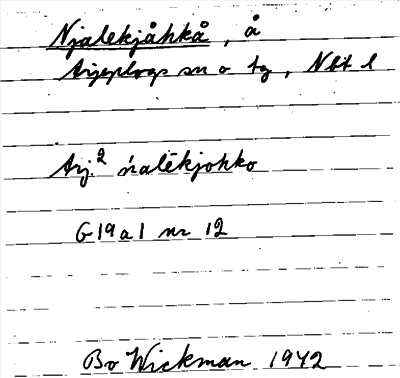 Njalekjåhkå, å
Arjeplogs sn o tg, Nbt l
Arj.² ńalēkjohko
G 19 a 1 nr 12
Bo Wickman 1942